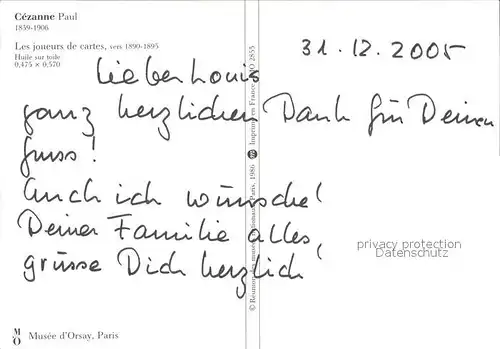 Cézanne Paul
1839-1906
Les joueurs de cartes, vers 1890-1895
Huile sur toile
0,475 × 0,570
31.12.2005
Lieber Louis
ganz herzlichen Dank für Deinen
Guss!
Auch ich wünsche!
Deiner Familie alles,
grüsse Dich herzlich!
privacy protection
Datenschutz
M
O
Musée d'Orsay, Paris
© Réunion des musées nationaux, Paris, 1986
Imprimé en France